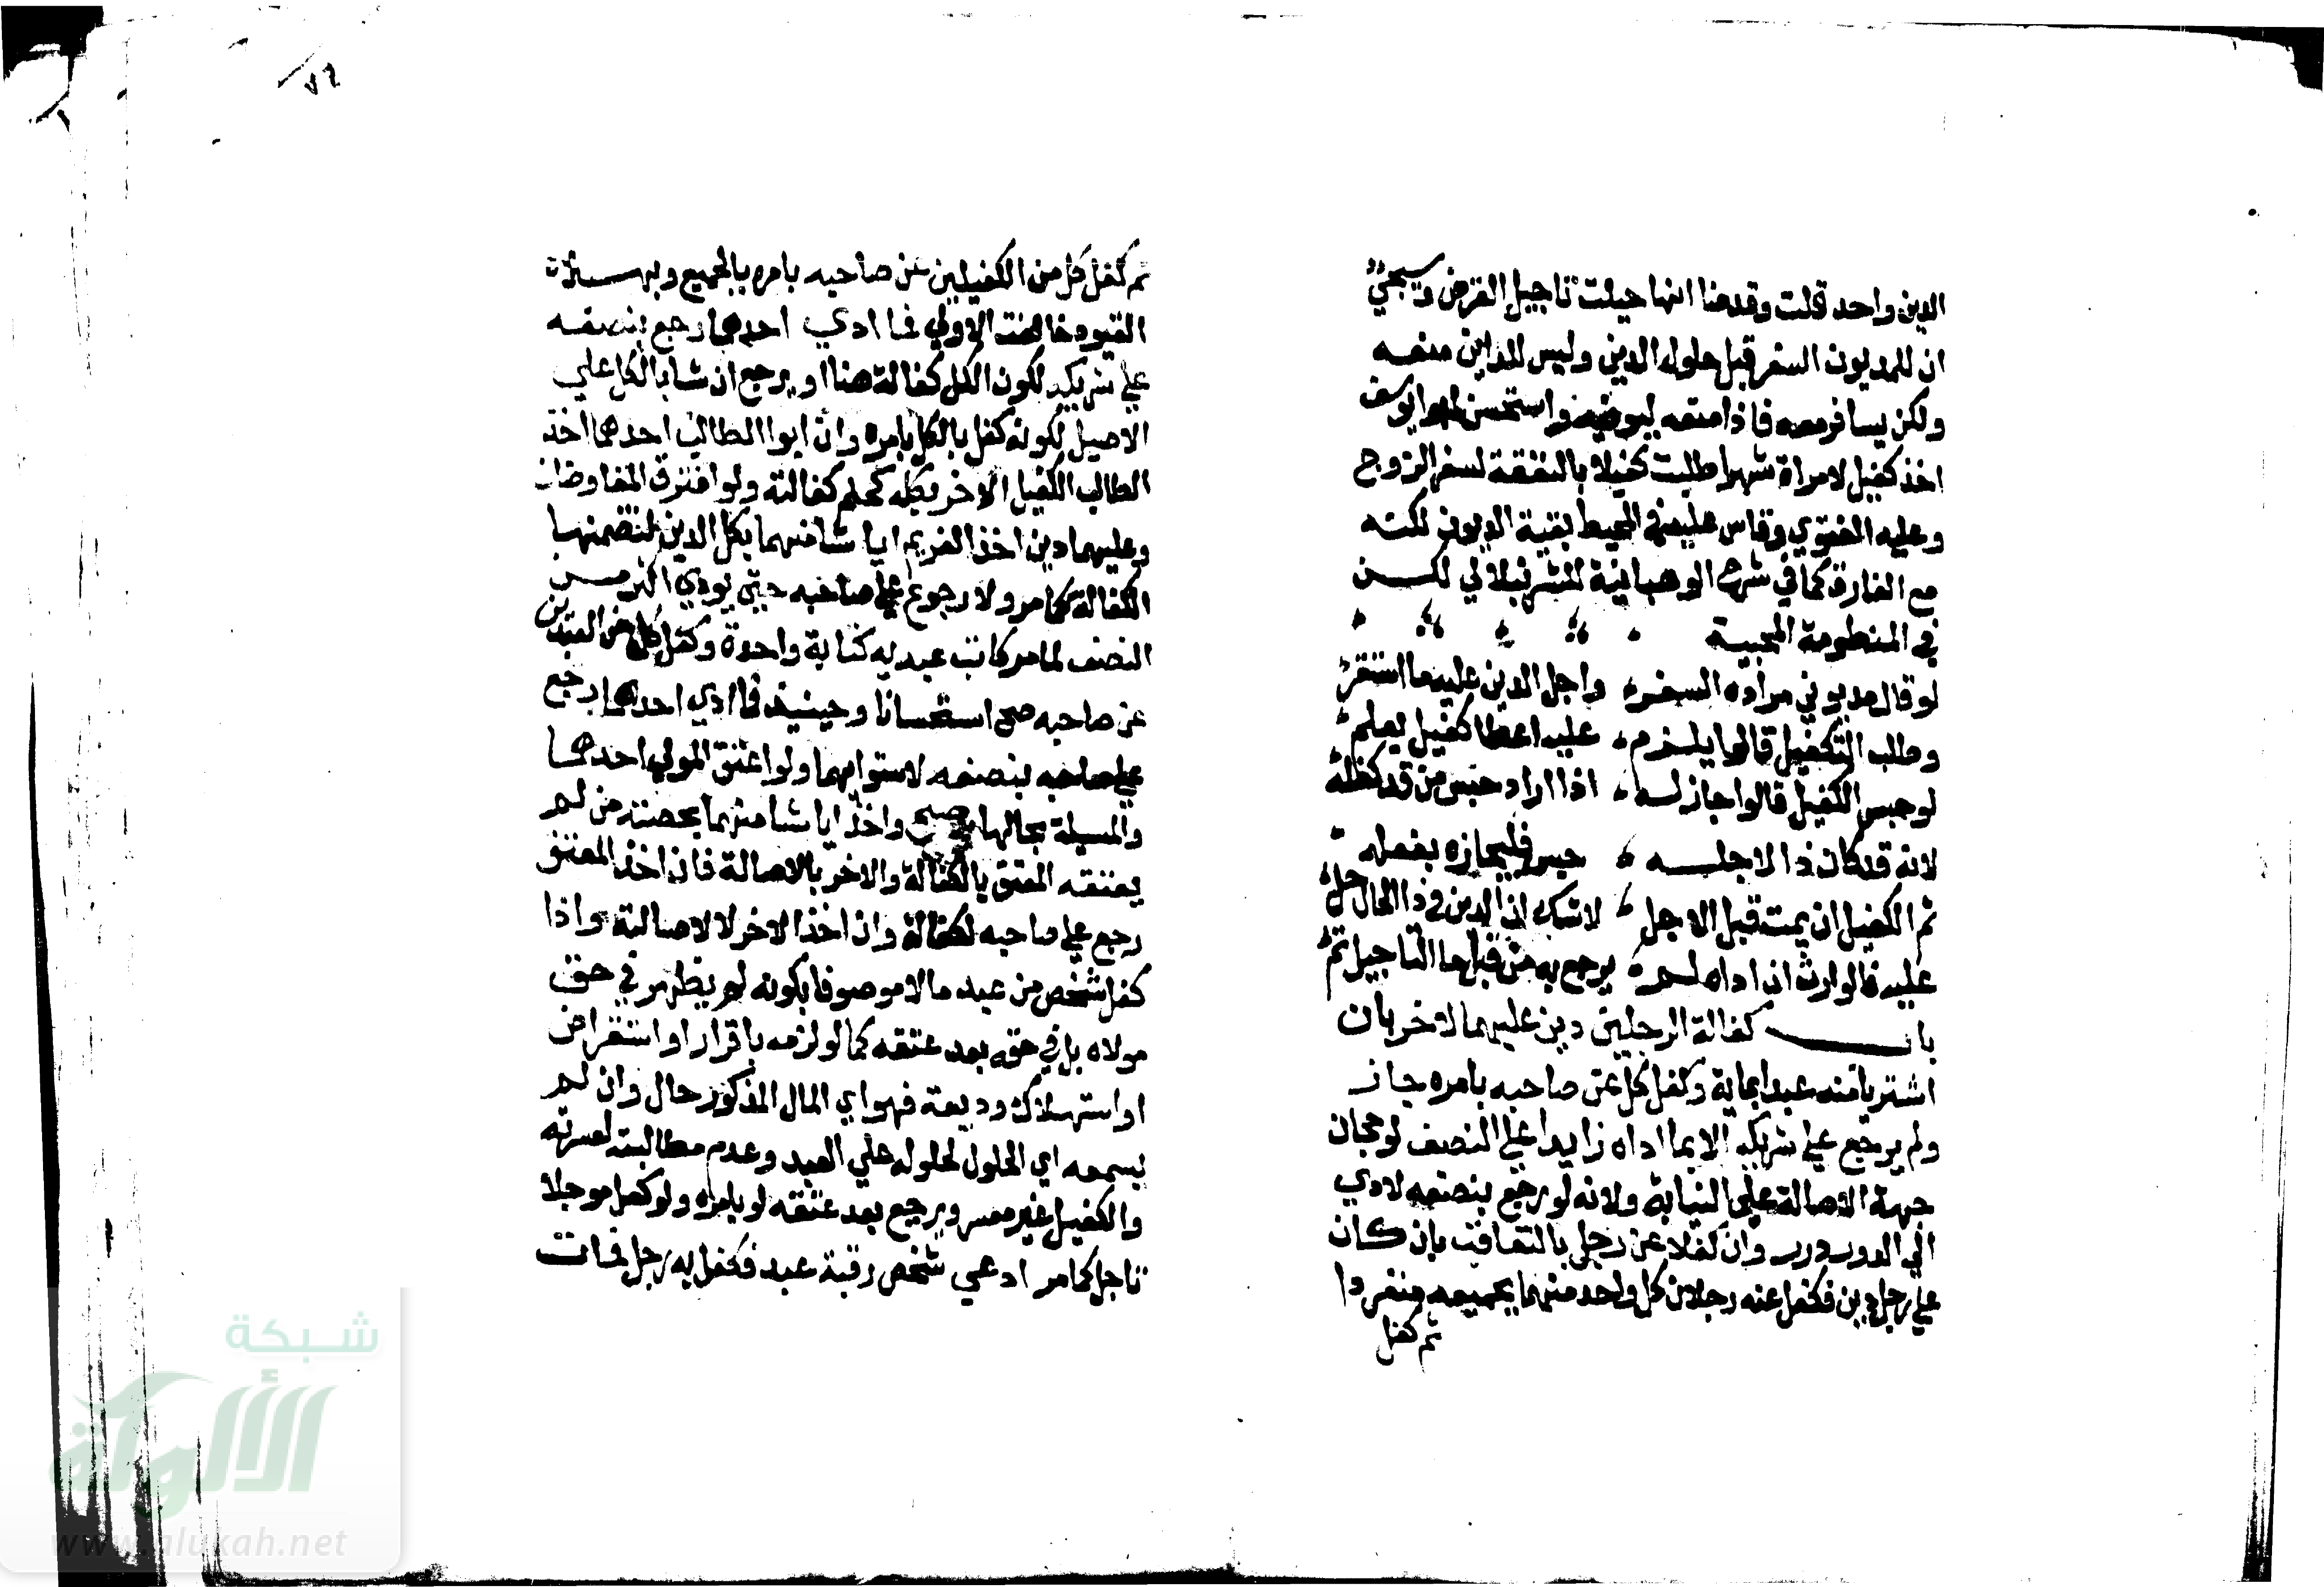 ٧٢
الدين واحد قلت وقدمنا انها حيلت تاجيل القرض وسيجيء
ان للمديون السفر قبل حلول الدين وليس للداين منعه
ولكن يسافر معه فاذا منعه ليوفيه واستحسن ابو يوسف
اخذ كفيل لامراة شهرا طلبت كفيلا بالنفقة لسفر الزوج
وعليه الفتوي وقاس عليه في المحيط بقية الديون لكنه
مع الفارق كما في شرح الوهبانية للشرنبلالي لكن
في المنظومة المحبية
لو قال مديوني مراده السفر واجل الدين عليه ما استقر
وطلب التكفيل قالوا يلزم عليه اعطا كفيل يعلم
لو حبس الكفيل قالوا جاز له اذا اراد حبس من قد كفله
لانه قد كان ذا لاجله حبس فليجازه بفعله
ثم الكفيل ان يمت قبل الاجل لا شك ان الدين في ذا الحال حل
عليه فالوارث اذا اداه لم يرجع به من قبل ما التاجيل تم
باب كفالة الرجلين دين عليهما لاخر بان
اشتريا منه عبدا بماية وكفل كل عن صاحبه بامره جاز
ولم يرجع علي شريكه الا بما اداه زايدا علي النصف لرجحان
جهة الاصالة علي النيابة ولانه لو رجع بنصفه لادي
الي الدور درر وان كفلا عن رجل بالتعاقب بان كان
علي رجل دين فكفل عنه رجلان كل واحد منهما بجميعه منفردا
ثم كفل
ثم كفل كل من الكفيلين عن صاحبه بامره بالجميع وبهذه
القيود خالفت الاولي فما ادي احدهما رجع بنصفه
علي شريكه لكون الكل كفالة هنا او يرجع ان شا بالكل علي
الاصيل لكونه كفل بالكل بامره وان ابرا الطالب احدهما اخذ
الطالب الكفيل الاخر بكله بحكم كفالته ولو افترق المفاوضان
وعليهما دين اخذ الغريم ايا شا منهما بكل الدين لتضمنها
الكفالة كما مر ولا رجوع علي صاحبه حتي يودي اكثر من
النصف لما مر كاتب عبديه كتابة واحدة وكفل كل من العبدين
عن صاحبه صح استحسانا وحينيذ فما ادي احدهما رجع
علي صاحبه بنصفه لاستوايهما ولو اعتق المولي احدهما
والمسيلة بحالها صح واخذ ايا شا منهما بحصته من لم
يعتقه المعتق بالكفالة والاخر بالاصالة فان اخذ المعتق
رجع علي صاحبه لكفالة وان اخذ الاخر لا لاصالته واذا
كفل شخص من عبد مالا موصوفا بكونه لم يظهر في حق
مولاه بل في حقه بعد عتقه كما لو لزمه باقرار او استقراض
او استهلاك وديعة فهو اي المال المذكور حال وان لم
يسمعه اي الحلول لحلوله علي العبد وعدم مطالبته لعسرته
والكفيل غير معسر ويرجع بعد عتقه لو بامره ولو كفل موجلا
تاجل كما مر ادعي شخص رقبة عبد فكفل به رجل فمات
شبكة
الألوكة
www.alukah.net